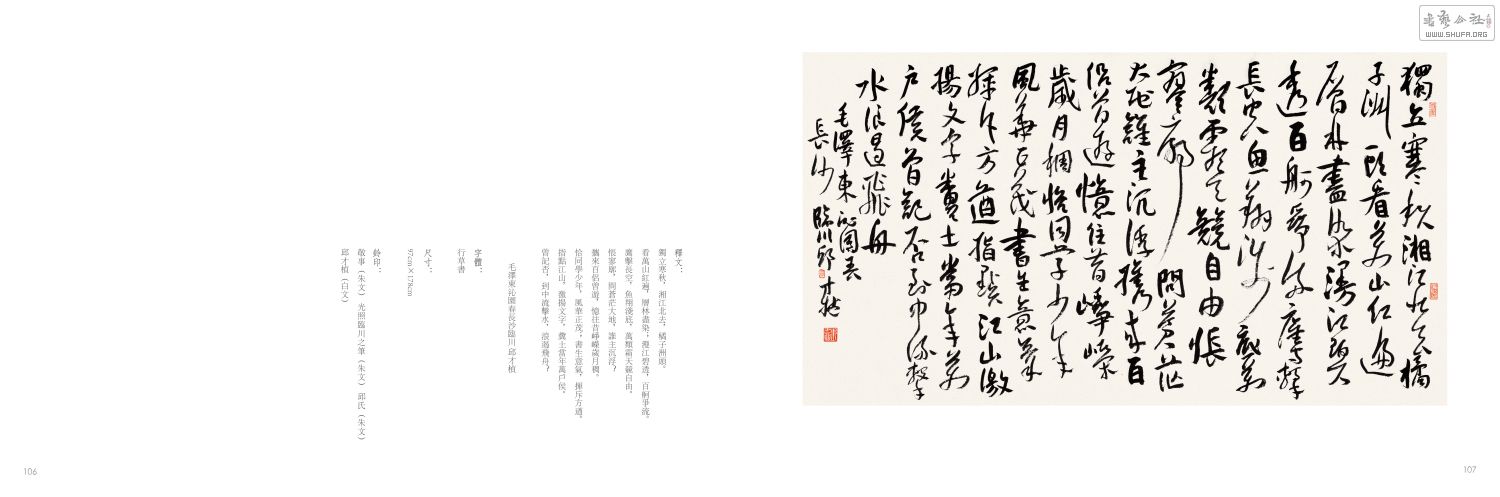 書藝公社
WWW.SHUFA.ORG
獨立寒秋湘江北去橘
子洲頭看萬山紅遍
層林盡染漫江碧
透百舸爭流鷹擊
長空魚翔淺底萬
類霜天競自由悵
寥廓問蒼茫
大地誰主沉浮攜來百
侶曾遊憶往昔崢嶸
歲月稠恰同學少年
風華正茂書生意氣
揮斥方遒指點江山激
揚文字糞土當年萬
戶侯曾記否到中流擊
水浪遏飛舟
毛澤東沁園春
長沙臨川邱才楨
釋文：
獨立寒秋，湘江北去，橘子洲頭。
看萬山紅遍，層林盡染；漫江碧透，百舸爭流。
鷹擊長空，魚翔淺底，萬類霜天競自由。
悵寥廓，問蒼茫大地，誰主沉浮？
攜來百侶曾遊，憶往昔崢嶸歲月稠。
恰同學少年，風華正茂；書生意氣，揮斥方遒。
指點江山，激揚文字，糞土當年萬戶侯。
曾記否，到中流擊水，浪遏飛舟？
毛澤東沁園春長沙臨川邱才楨
字體：
行草書
尺寸：
97cm×178cm
鈐印：
敬事（朱文） 光照臨川之筆（朱文） 邱氏（朱文）
邱才楨（白文）
106
107